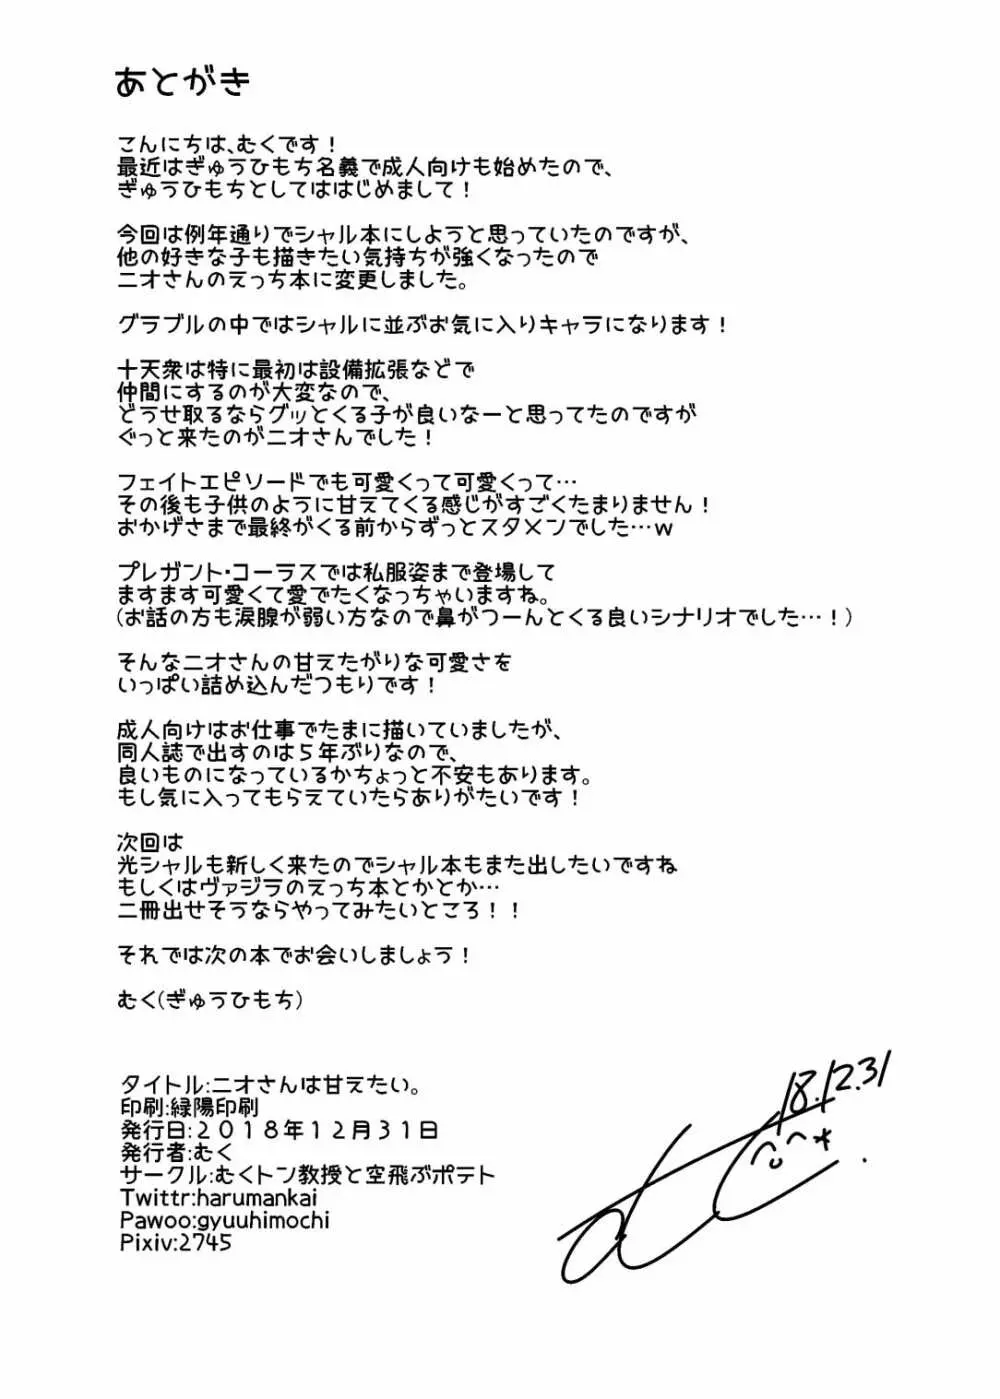 あとがき
こんにちは、むくです！
最近はぎゅうひもち名義で成人向けも始めたので、
ぎゅうひもちとしてははじめまして！
今回は例年通りでシャル本にしようと思っていたのですが、
他の好きな子も描きたい気持ちが強くなったので
ニオさんのえっち本に変更しました。
グラブルの中ではシャルに並ぶお気に入りキャラになります！
十天衆は特に最初は設備拡張などで
仲間にするのが大変なので、
どうせ取るならグッとくる子が良いなーと思ってたのですが
ぐっと来たのがニオさんでした！
フェイトエピソードでも可愛くって可愛くって…
その後も子供のように甘えてくる感じがすごくたまりません！
おかげさまで最終がくる前からずっとスタメンでした…ｗ
プレガント・コーラスでは私服姿まで登場して
ますます可愛くて愛でたくなっちゃいますね。
(お話の方も涙腺が弱い方なので鼻がつーんとくる良いシナリオでした…！)
そんなニオさんの甘えたがりな可愛さを
いっぱい詰め込んだつもりです！
成人向けはお仕事でたまに描いていましたが、
同人誌で出すのは５年ぶりなので、
良いものになっているかちょっと不安もあります。
もし気に入ってもらえていたらありがたいです！
次回は
光シャルも新しく来たのでシャル本もまた出したいですね
もしくはヴァジラのえっち本とかとか…
二冊出せそうならやってみたいところ！！
それでは次の本でお会いしましょう！
むく(ぎゅうひもち)
タイトル:ニオさんは甘えたい。
印刷:緑陽印刷
発行日:２０１８年１２月３１日
発行者:むく
サークル:むくトン教授と空飛ぶポテト
Twittr:harumankai
Pawoo:gyuuhimochi
Pixiv:2745
18.12.31